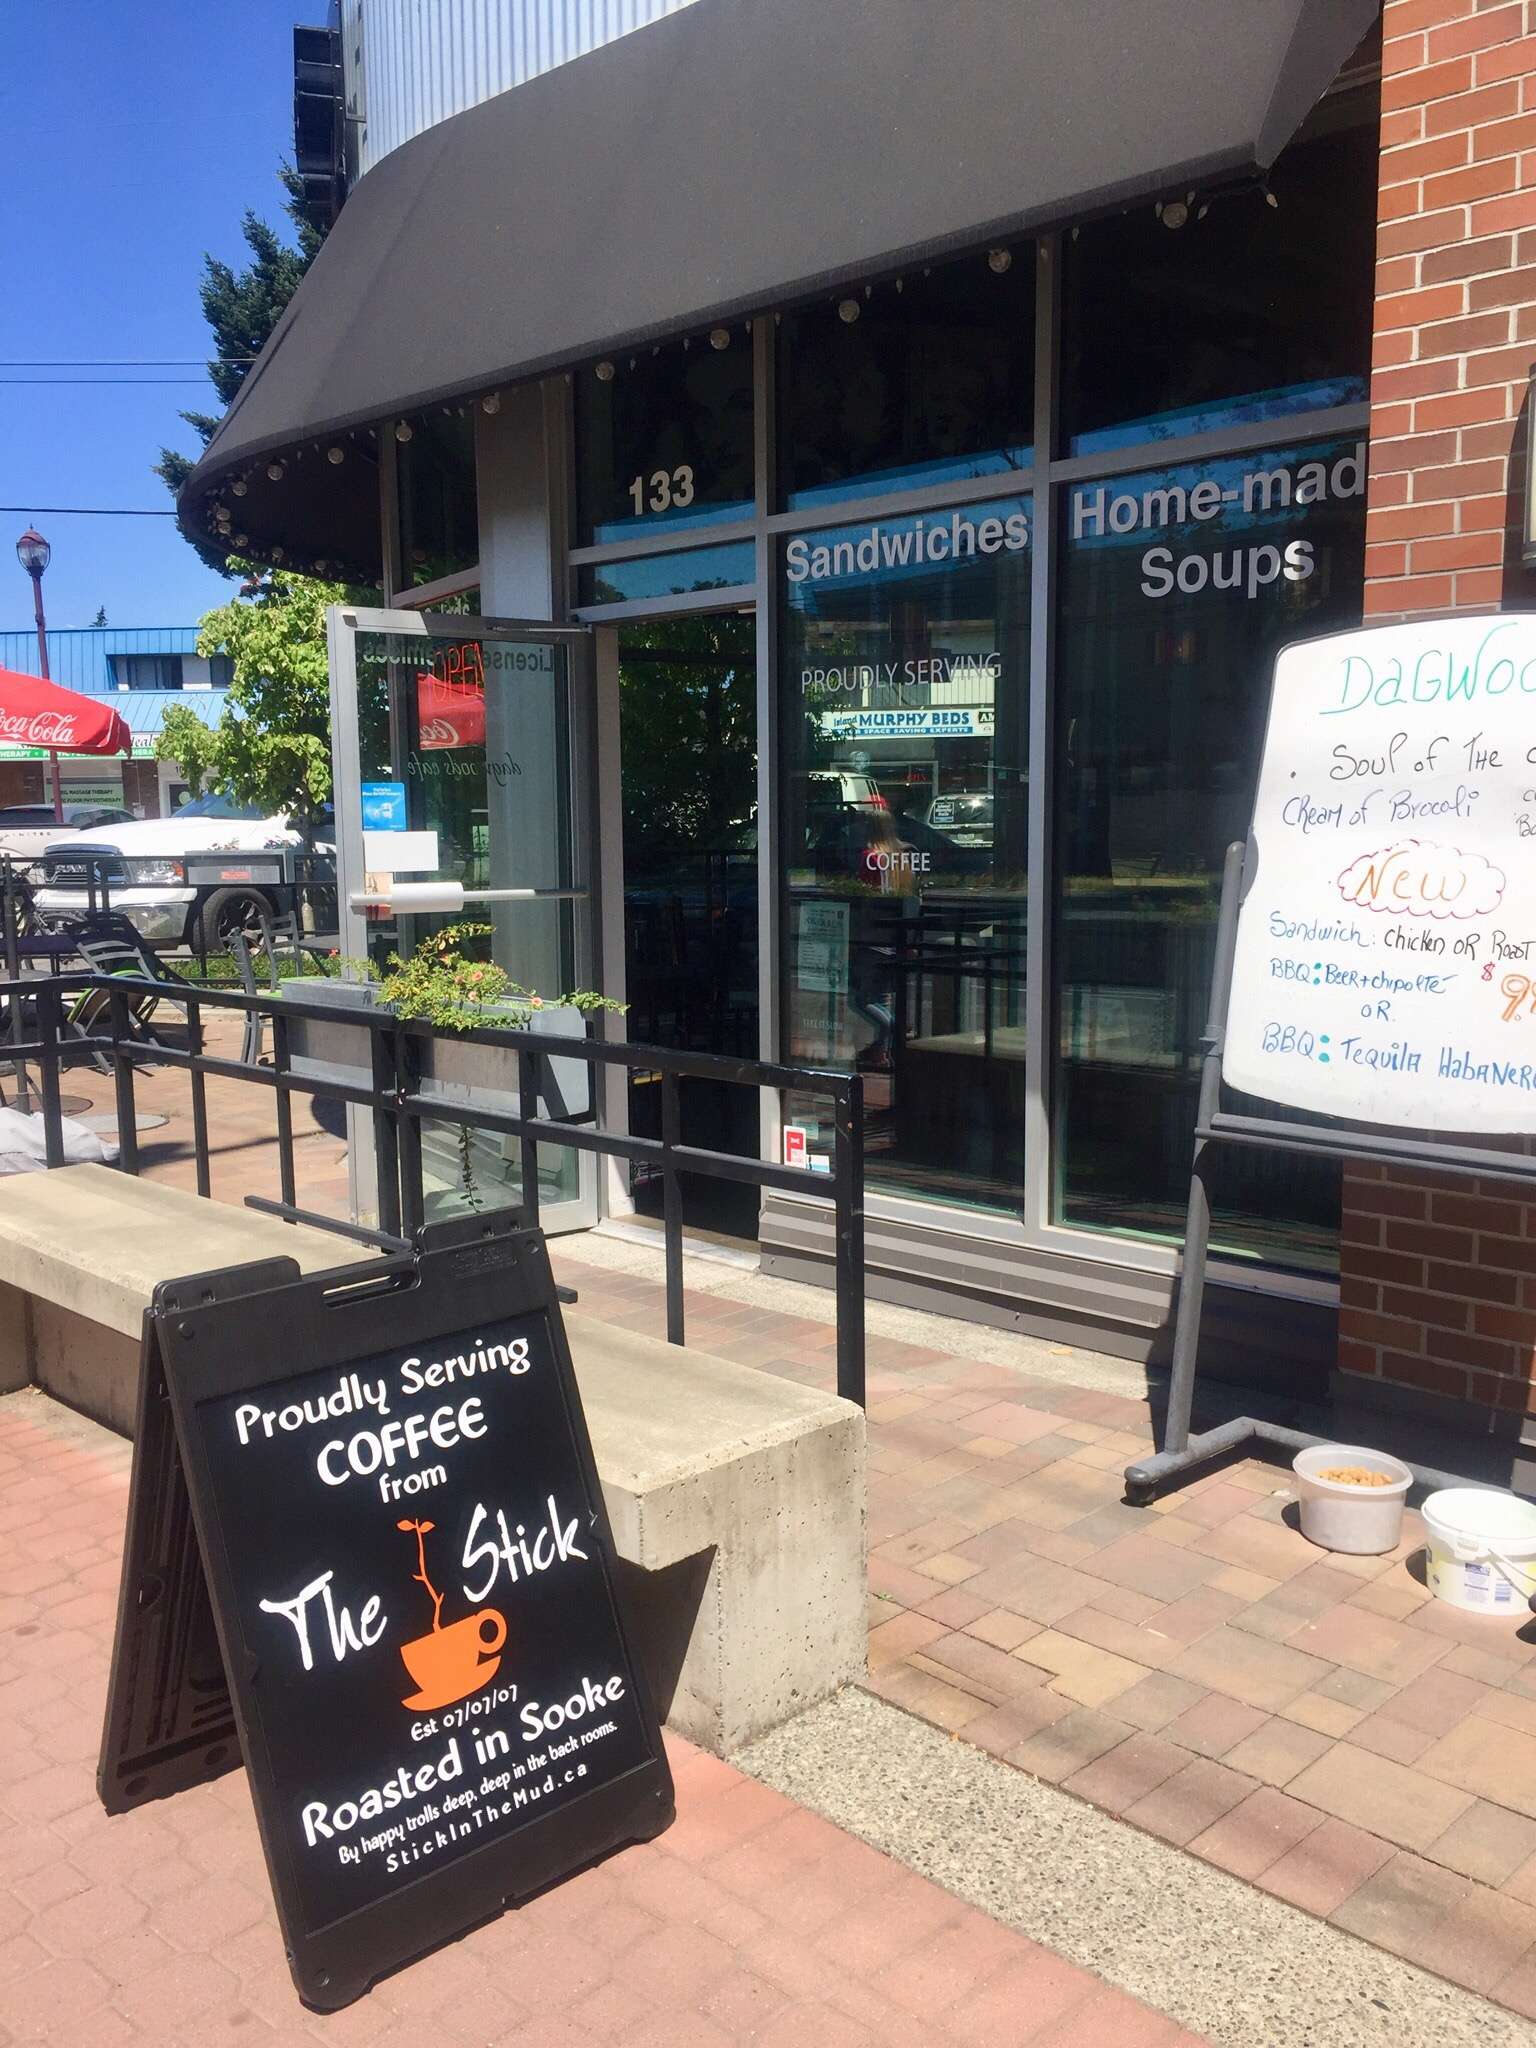 133
Sandwiches
Home-mad
Soups
PROUDLY SERVING
COFFEE
Island MURPHY BEDS
YOUR SPACE SAVING EXPERTS
OPEN
License
dagwoods cafe
Coca-Cola
MASSAGE THERAPY
FLOOR PHYSIOTHERAPY
RAM
DaGWoo
. Soul of The
Cream of Brocoli
New
Sandwich: chicken OR Roast
BBQ: Beer+chipolté $9.
OR.
BBQ: Tequila Habaner
Proudly Serving
COFFEE
from
The Stick
Est 07/07/07
Roasted in Sooke
By happy trolls deep, deep in the back rooms.
StickInTheMud.ca